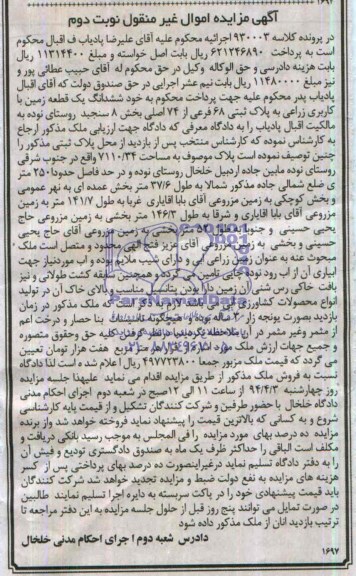 ۱۶۹۷
آگهی مزایده اموال غیر منقول نوبت دوم
در پرونده کلاسه ۹۳۰۰۰۳ اجرائیه محکوم علیه آقای علیرضا پادیاب ف اقبال محکوم
است به پرداخت ۶۲۱۲۴۶۸۹۰ ریال بابت اصل خواسته و مبلغ ۱۱۳۱۴۴۰۰ ریال
بابت هزینه دادرسی و حق الوکاله وکیل در حق محکوم له آقای حبیب عطائی پور و
نیز مبلغ ۱۱۴۸۰۰۰۰ ریال بابت نیم عشر اجرایی در حق صندوق دولت که آقای اقبال
پادیاب پدر محکوم علیه جهت پرداخت محکوم به خود ششدانگ یک قطعه زمین با
کاربری زراعی به پلاک ثبتی ۶۸ فرعی از ۷۴ اصلی بخش ۸ سنجبد روستای نوده به
مالکیت اقبال پادیاب را به دادگاه معرفی که دادگاه جهت ارزیابی ملک مذکور ارجاع
به کارشناس نموده که کارشناس منتخب پس از بازدید از محل پلاک ثبتی مذکور را
چنین توصیف نموده است پلاک موصوف به مساحت ۷۱۱۰/۳۴ واقع در جنوب شرقی
روستای نوده مابین جاده اردبیل خلخال روستای نوده و در حد فاصل حدودا ۲۵۰ متر
ی ضلع شمالی جاده مذکور شمالا به طول ۳۷/۶ متر بخش عمده ای به نهر عمومی
و بخش کوچکی به زمین مزروعی آقای بابا اقایاری غربا به طول ۱۴۱/۷ متر به زمین
مزروعی آقای بابا اقایاری و شرقا به طول ۱۴۶/۳ متر بخشی به زمین مزروعی حاج
یحیی حسینی و جنوبا به طول متر بخشی به زمین مزروعی آقای حاج یحیی
حسینی و بخشی به زمین مزروعی آقای عزیز فتح الهی محدود و متصل است ملک
مبحوث عنه به عنوان زمین زراعی آبی و دارای شیب ملایم بوده و آب موردنیاز جهت
ابیاری آن از اب رود نوده چایی تامین می گردد و همچنین سابقه کشت طولانی و نیز
بافت خاکی رس شنی آن زمین دارا بودن پتانسیل مناسب و بالای خاک آن در تولید
انواع محصولات کشاورزی
بازدید بصورت یونجه زار ۳ ساله بوده و هیچگونه مستحدثات بنا حصار و درخت اعم
از مثمر وغیر مثمر در آن ملاحظه نگردید با در نظر گرفتن کلیه حق وحقوق متصوره
و جمیع جهات ارزش ملک مورد نظر از قرار هر متر مربع هفت هزار تومان تعیین
می گردد که قیمت ملک مزبور جمعا ۴۹۷۷۲۳۸۰۰ ریال اعلام شده است لذا دادگاه
نسبت به فروش ملک مذکور از طریق مزایده اقدام می نماید علیهذا جلسه مزایده
روز چهارشنبه ۹۴/۴/۳ از ساعت ۱۱ الی ۱۲ صبح در شعبه دوم اجرای احکام مدنی
دادگاه خلخال با حضور طرفین و شرکت کنندگان تشکیل و از قیمت پایه کارشناسی
شروع و به کسانی که بالاترین قیمت را پیشنهاد نماید فروخته خواهد شد و از برنده
مزایده ده درصد بهای مورد مزایده را فی المجلس به موجب رسید بانکی دریافت و
مکلف است الباقی را حداکثر ظرف یک ماه به صندوق دادگستری تودیع و فیش آن
را به دفتر دادگاه تسلیم نماید درغیراینصورت ده درصد بهای پرداختی پس از کسر
هزینه های مزایده به نفع دولت ضبط و مزایده تجدید خواهد شد شرکت کنندگان
باید قیمت پیشنهادی خود را در پاکت سربسته به دایره اجرا تسلیم نمایند طالبین
در صورت تمایل می توانند پنج روز قبل از حلول جلسه مزایده به این دفتر مراجعه تا
ترتیب بازدید آنان از ملک مذکور داده شود
دادرس شعبه دوم اجرای احکام مدنی خلخال
۱۶۹۷